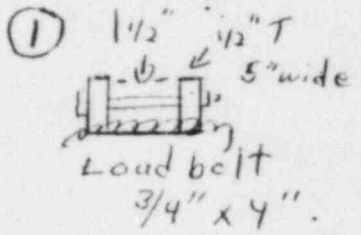 ① 1 1/2" 1/2" T
5" wide
Load bolt
3/4" x 4".